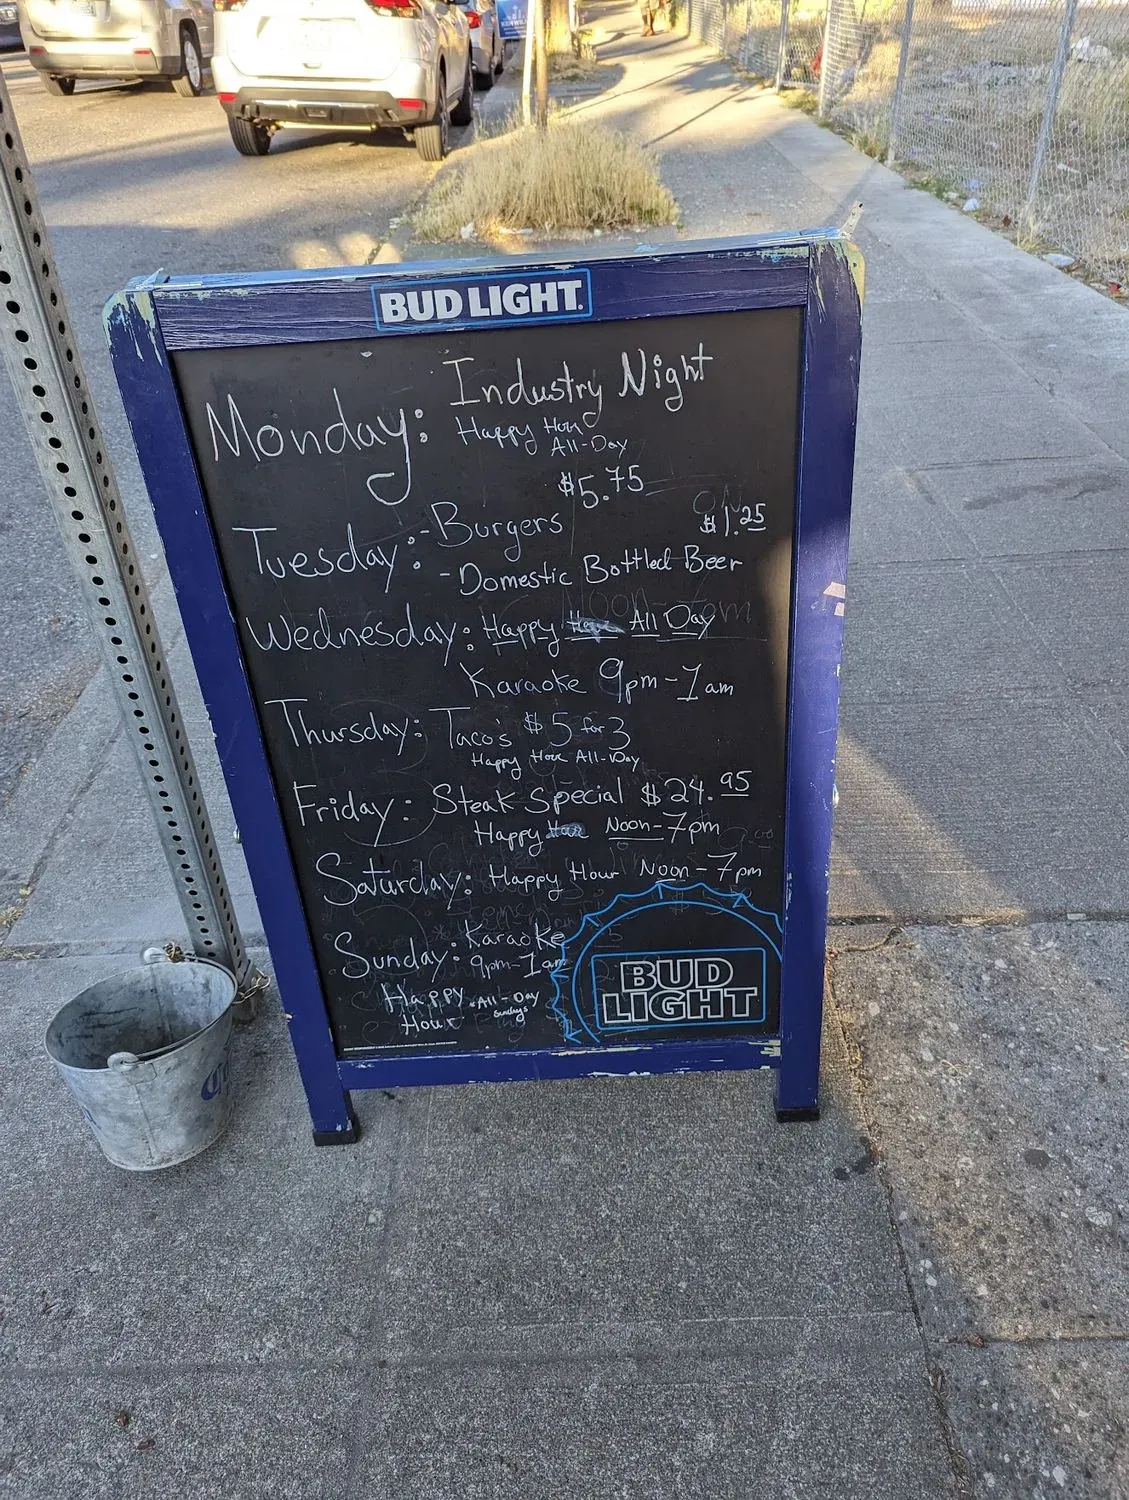 BUD LIGHT.
Monday: Industry Night
Happy Hour
All-Day
$5.75
Tuesday: - Burgers $1.25
- Domestic Bottled Beer
Wednesday: Happy Hour All Day
Karaoke 9pm-1am
Thursday: Taco's $5 for 3
Happy Hour All-Day
Friday: Steak Special $24.95
Happy Hour Noon-7pm
Saturday: Happy Hour Noon-7pm
Sunday: Karaoke
9pm-1am
Happy All-Day
Hour Sundays
BUD
LIGHT